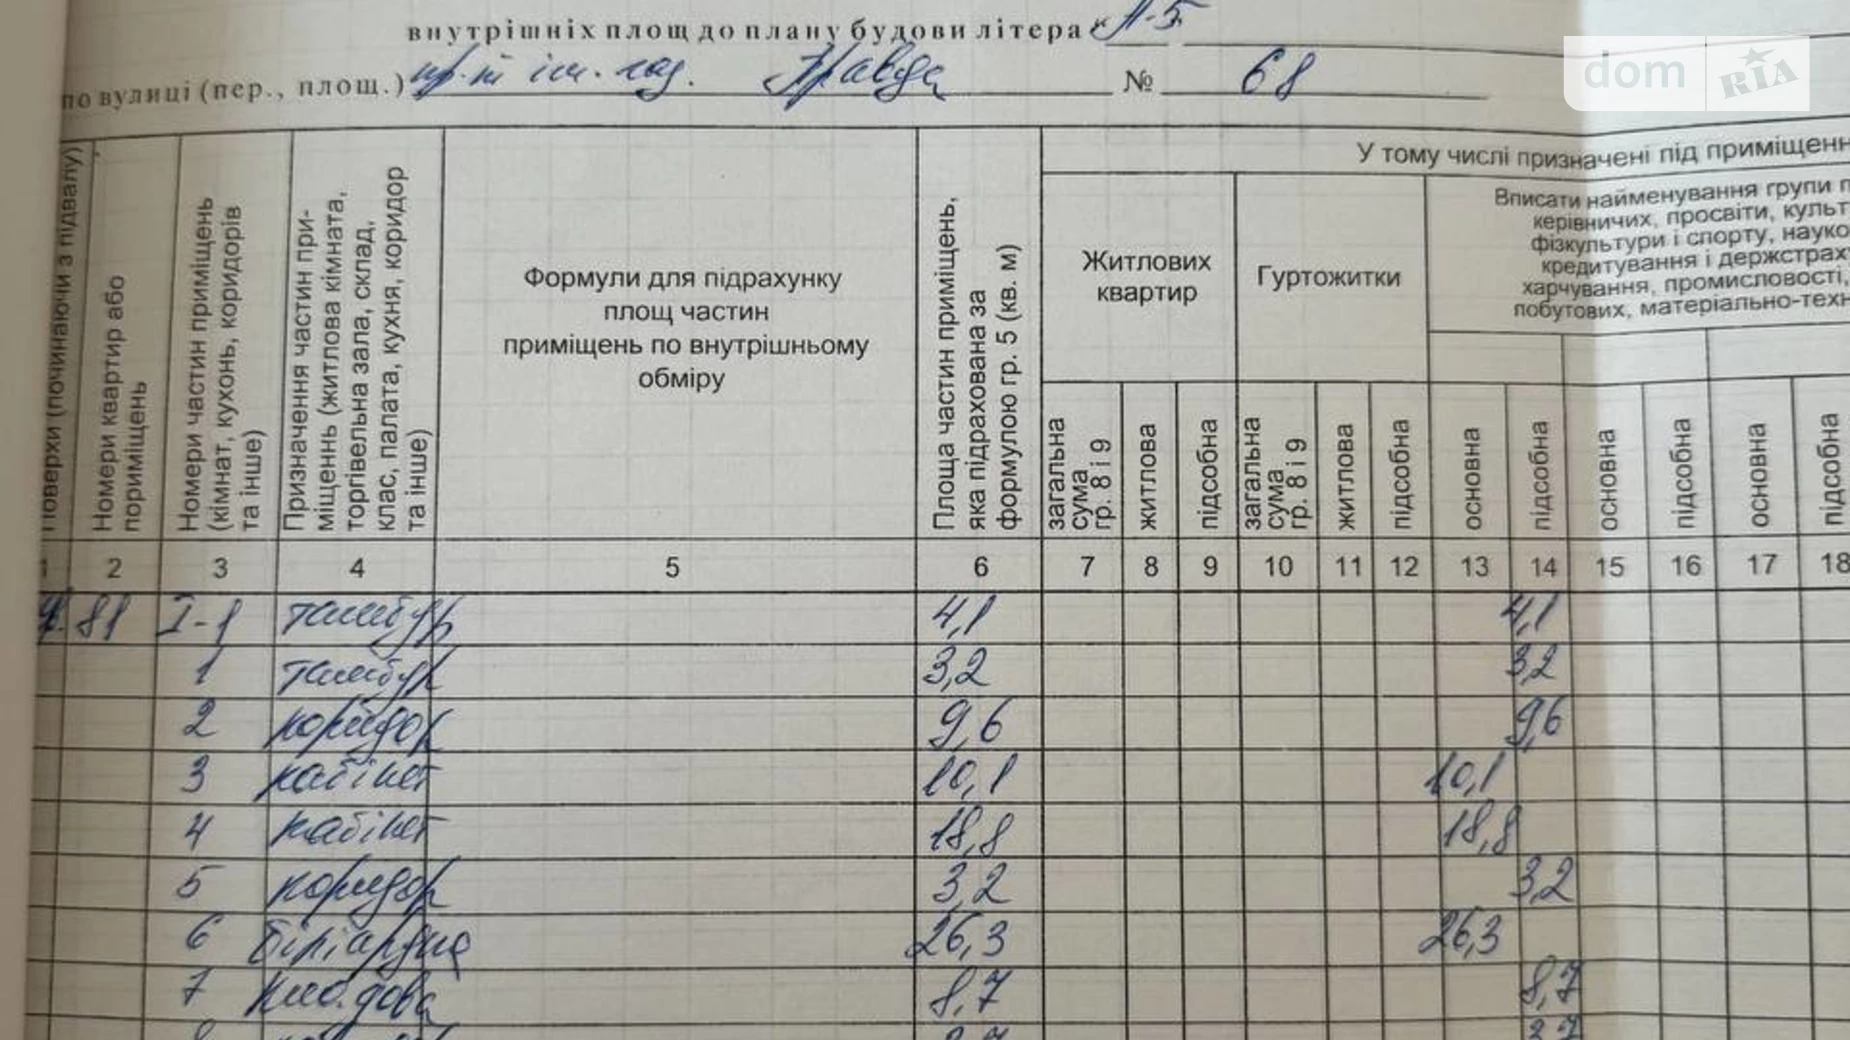 внутрішніх площ до плану будови літера "А-5
по вулиці (пер., площ.) пр-т ім. газ. Правда № 68
dom RIA
У тому числі призначені під приміщенн
Поверхи (починаючи з підвалу)
Номери квартир або
пориміщень
Номери частин приміщень
(кімнат, кухонь, коридорів
та інше)
Призначення частин при-
міщеннь (житлова кімната,
торгівельна зала, склад,
клас, палата, кухня, коридор
та інше)
Формули для підрахунку
площ частин
приміщень по внутрішньому
обміру
Площа частин приміщень,
яка підрахована за
формулою гр. 5 (кв. м)
Житлових
квартир
Гуртожитки
Вписати найменування групи п
керівничих, просвіти, культ
фізкультури і спорту, науко
кредитування і держстрах
харчування, промисловості,
побутових, матеріально-техн
загальна
сума
гр. 8 і 9
житлова
підсобна
загальна
сума
гр. 8 і 9
житлова
підсобна
основна
підсобна
основна
підсобна
основна
підсобна
1 2 3 4 5 6 7 8 9 10 11 12 13 14 15 16 17 18
81 I-1 тамбур 4,1 4,1
1 тамбур 3,2 3,2
2 коридор 9,6 9,6
3 кабінет 10,1 10,1
4 кабінет 18,8 18,8
5 коридор 3,2 3,2
6 більярдна 26,3 26,3
7 кладова 8,7 8,7